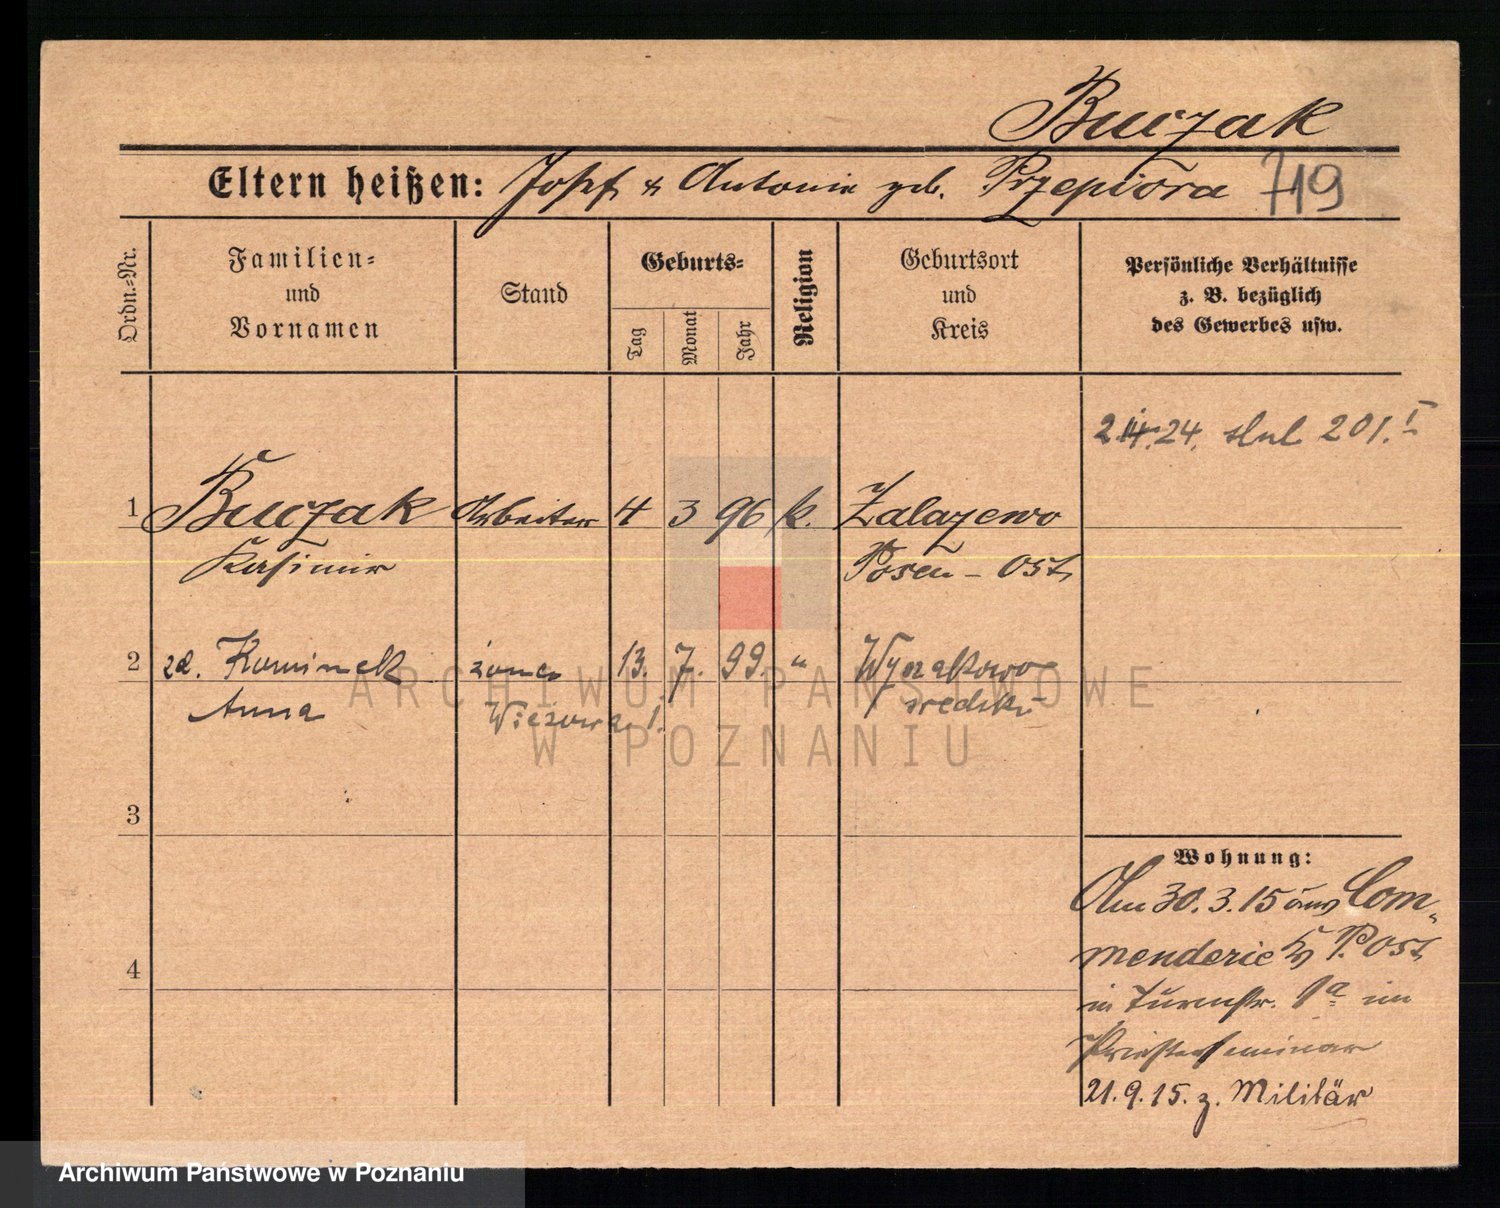 Buczak
Eltern heißen: Josef & Antonie geb. Przepiora 719
Ordn.-Nr.
Familien-
und
Vornamen
Stand
Geburts-
Tag
Monat
Jahr
Religion
Geburtsort
und
Kreis
Persönliche Verhältnisse
z. B. bezüglich
des Gewerbes usw.
24. 201.I
1 Buczak Arbeiter 4 3 96 k. Zalazewo
Kasimir Posen - Ost
2 zd. Kominek żona 13. 7. 99. " Wyszakowo
Anna średzki
3
4
Wohnung:
Am 30.3.15 aus Com-
menderie Kr P. Ost
in Turmstr. 1a im
Priesterseminar
21.9.15. z. Militär
ARCHIWUM PAŃSTWOWE
W POZNANIU
Archiwum Państwowe w Poznaniu